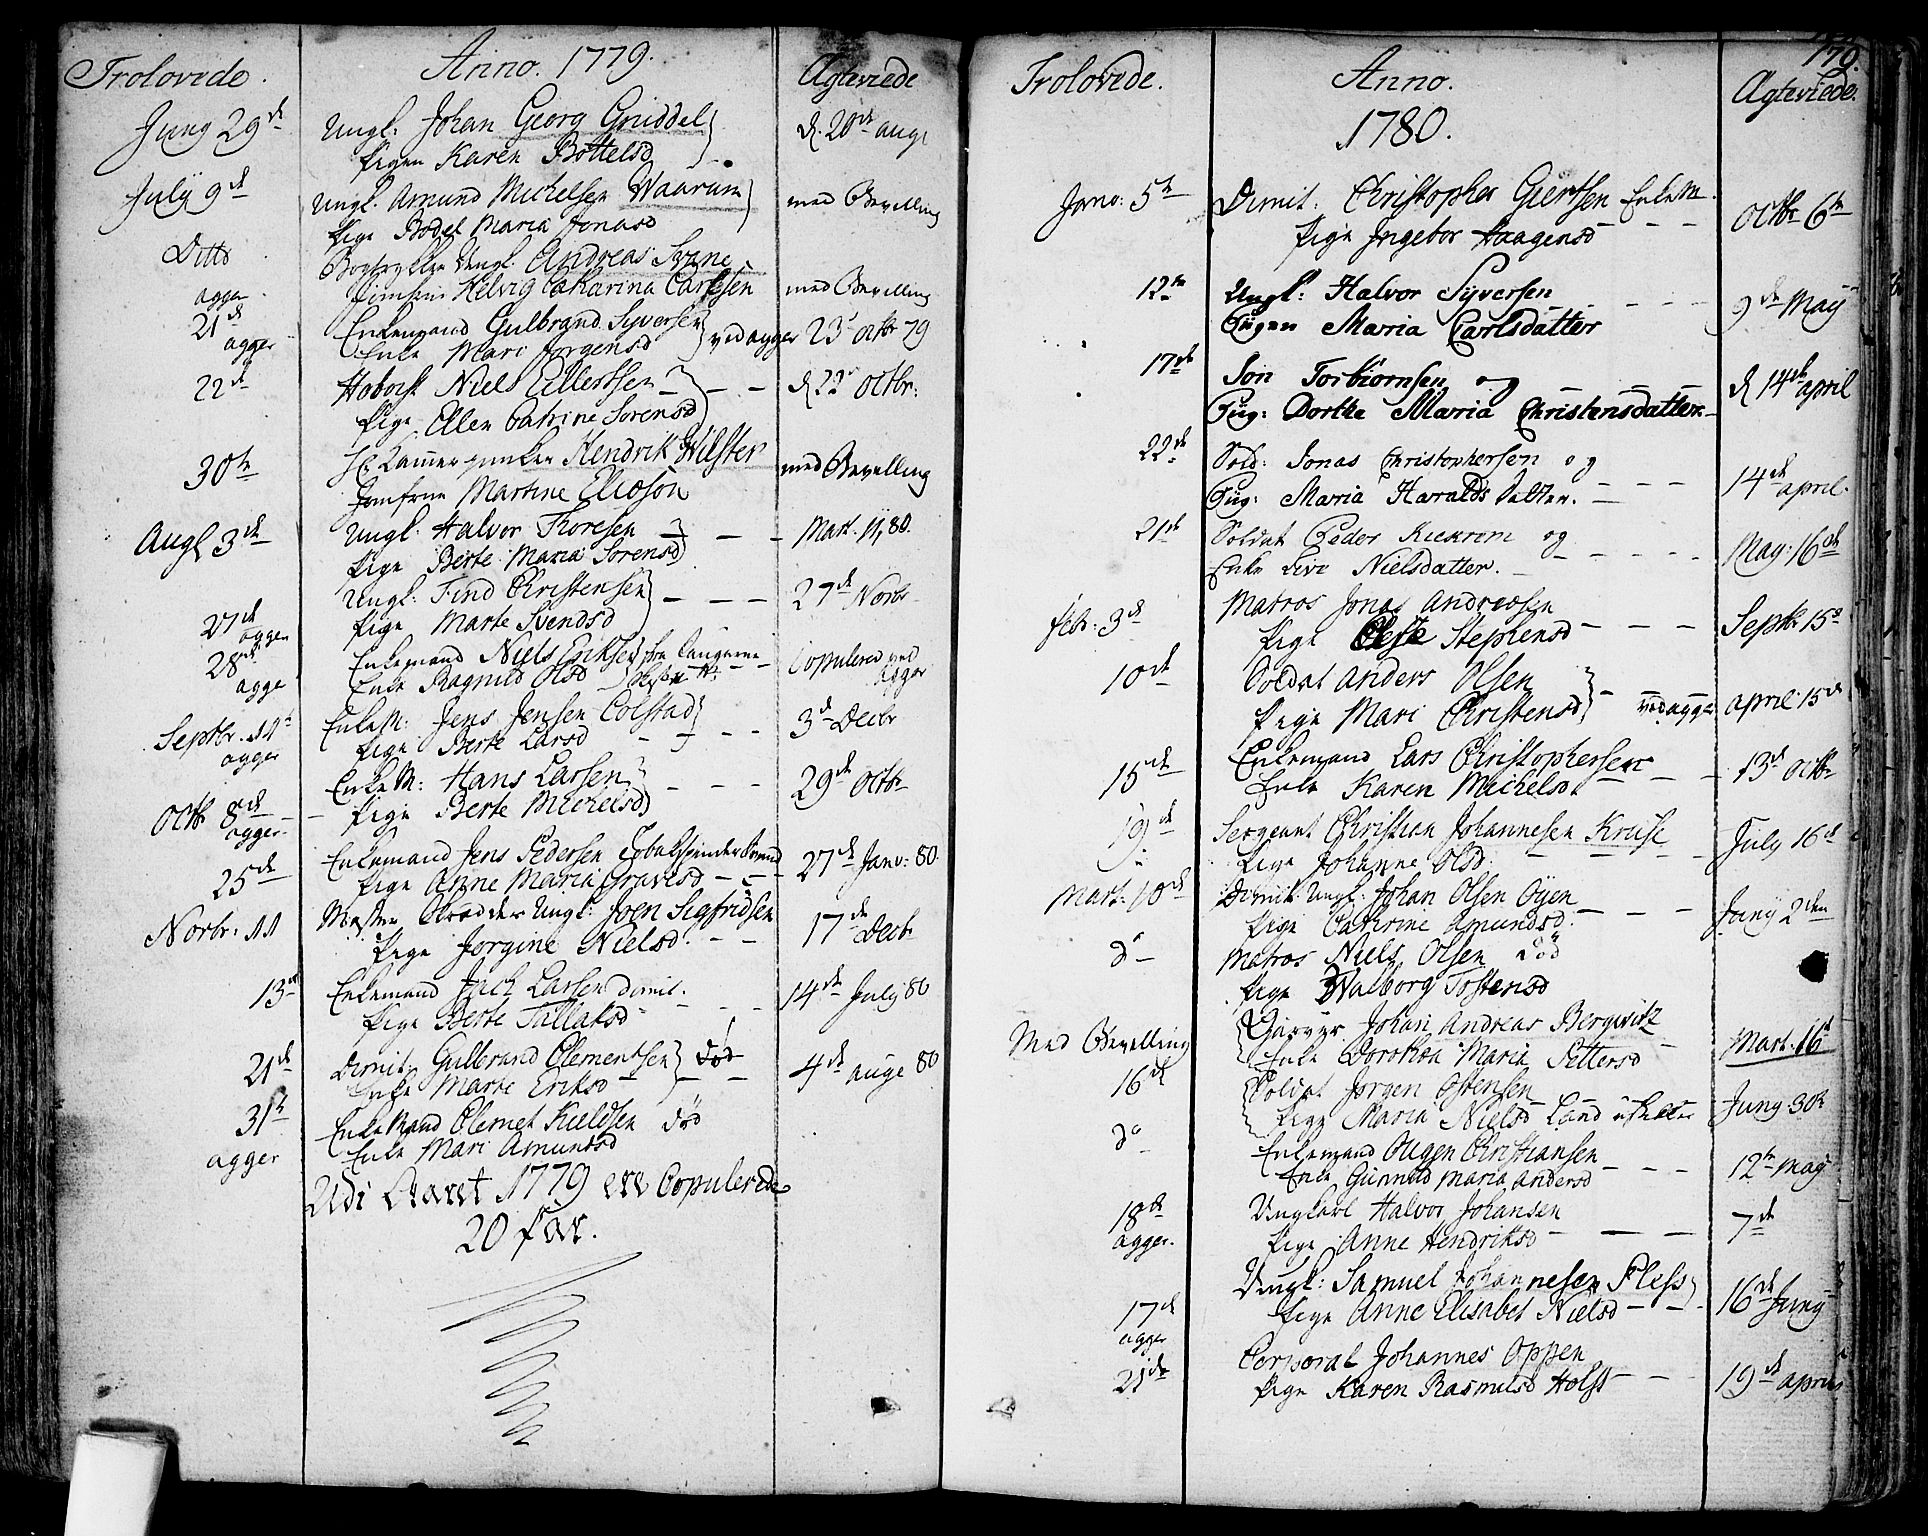 Trolovede.
Anno. 1779.
Ægteviede
Juny 29de
Ungl: Johan Georg Griddel
Pigen Karen Bottelsd
d. 20de aug
July 9de
Ungl. Amund Michelsen Waarum
Pige Bodel Maria Jonasd
med Bevilling
Ditto
Bogtrykker Ungl. Andreas Svane
Jomfru Helvig Catharina Carlsen
med Bevilling
agger
21de
agger
Enkemand Gulbrand Syversen
Enke Mari Jørgensd
ved agger 23 octbr 79
22de
Hoboist Niels Ellertsen
Pige Ellen Catrine Sørensd
d 22 Octbr:
30te
Hr Cammerjunker Hendrik Wilster
Jomfrue Martine Elieson
med Bevilling
Augl 3de
Ungl. Halvor Thoresen
Pige Berte Maria Sørensd
Mart. 11, 80.
Ungl: Find Christensen
Pige Marte Svendsd
27de Novbr
27de
agger
28de
agger
Enkemand Niels Eriksen fra
Enke Ragnild Olsd
Copulered ved
agger
Septbr. 14
agger
EnkeM: Jens Jensen Colstad
Pige Berte Larsd
3de Decbr
EnkeM: Hans Larsen
Pige Berte Michelsd
29de Octbr
Octbr 8de
agger
Enkemand Jens Pedersen
Pige Anne Maria Gravesd
27de Janv: 80.
25de
Novbr. 11
Mester Skrædder Ungl: Joen Sigfridsen
Pige Jorgine Nielsd.
17de Decbr
13de
Enkemand Jach Larsen dimit.
Pige Berte Tallaksd
14de July 80
21de
Dimit. Gulbrand Clementsen død
Enke Marte Eriksd
4de auge 80
31te
agger
EnkeMand Clemet Kieldsen død
Enke Mari Amundsd
Udi Aaret 1779 ere Copulerede
20 Par.
179.
Trolovede.
Anno.
1780.
Ægteviede.
Janv: 5te
Dimit: Christopher Giertsen EnkeM.
Pige Ingebor Haagensd
Octbr 6te
12te
Ungl: Halvor Syversen
Pigen Maria Carlsdatter
9de May
17de
Jon Torbiørnsen og
Pig: Dorthe Maria Christensdatter
d 14de april
22de
Sold: Jonas Christophersen og
Pig: Maria Haralds Datter.
14de april.
21de
Soldat Peder og
Enke Live Nielsdatter.
May: 16de
Febr: 3de
Matros Jonas Andreasen
Pige Stephensd
Septbr 15d
10de
Soldat Anders Olsen
Pige Mari Christensd
ved agger april 15de
15de
Enkemand Lars Christophersen
Enke Karen Michelsd.
13de Octbr
19de
Sergeant Christian Johannesen Kruse
Pige Johanne Olsd.
July 16de
Mart: 10de
Dimit: Ungl: Johan Olsen Øyen
Pige Catrine Amundsd.
Juny 2den
do
Matros Niels Olsen død
Pige Walborg Tostensd
Med Bevilling
Garver Johan Andreas Bergwitz
Enke Dorothea Maria Pettersd
Mart. 16d
16de
Soldat Jørgen Ostensen
Pige Maria Nielsd
Juny 30te
do
Enkemand Ougen Christiansen
Enke Gunnild Maria Andersd
12te may
18de
agger.
Ungkarl Halvor Johansen
Pige Anne Hendriksd
7de
Ungl: Samuel Johannesen Pless
Pige Anne Elisabet Nielsd
16de Juny
17de
agger
21de
Corporal Johannes Oppen
Pige Karen Rasmusd Holst
19de april